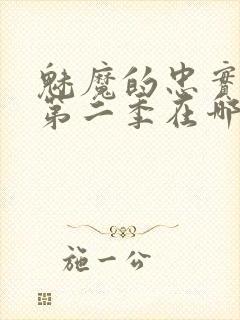 魅魔的忠實
第二季在哪
施一公